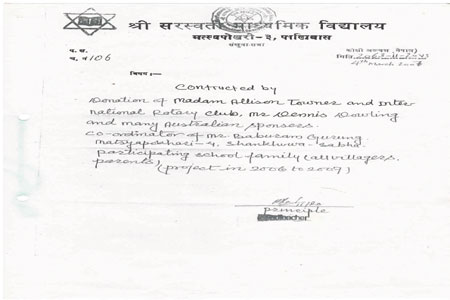 श्री सरस्वती माध्यमिक विद्यालय
मत्स्यपोखरी-३, पाख्रिबास
प. सं.
च. नं 106
विषय :
contructed by
Donation of Madam Allison Towner and Inter
national Rotary Club, Mr Dennis Dowling
and many Australian sponsers.
co-ordinator of Mr. Baburam Gurung
Matsyapokhari-4, Shankhuwa-Sabha
participating school family (all villagers,
parents) (project in 2006 to 2009)
principle